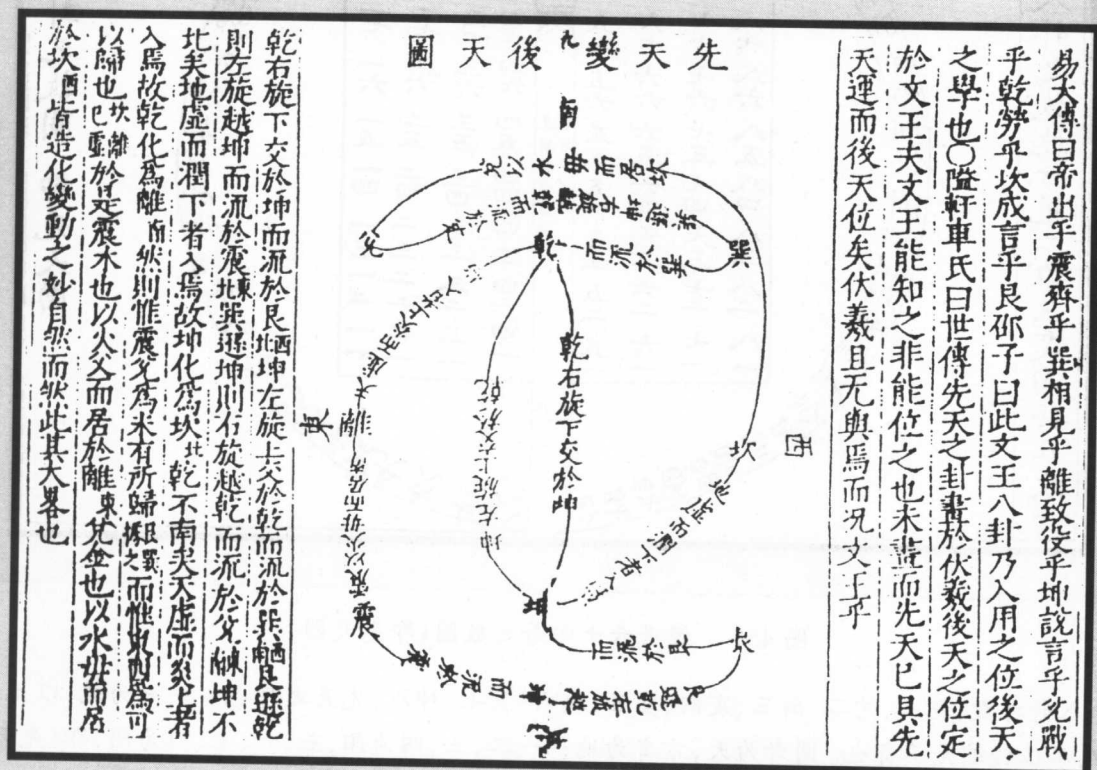 易大傳曰帝出乎震齊乎巽相見乎離致役乎坤說言乎兌戰
乎乾勞乎坎成言乎艮邵子曰此文王八卦乃入用之位後天
之學也〇隘軒車氏曰世傳先天之卦畫於伏羲後天之位定
於文王夫文王能知之非能位之也未畫而先天已具先
天運而後天位矣伏羲且无與焉而况文王乎
先天變後天圖
南
兌以水母而居坎
兌
乾
而流於巽
巽
乾右旋下交於坤
坤左旋上交於乾
東
西
離
坎
震
坤
而流於艮
艮
北
乾右旋下交於坤而流於艮西北坤左旋上交於乾而流於巽西南艮遜乾
則左旋越坤而流於震東北巽遜坤則右旋越乾而流於兌東南坤不
北夫地虛而潤下者入焉故坤化為坎北乾不南夫天虛而炎上者
入焉故乾化為離南然則惟震兌為未有所歸而惟東西為可
以歸也坎離已動於是震木也以火父而居於離東兌金也以水母而居
於坎西皆造化變動之妙自然而然此其大畧也